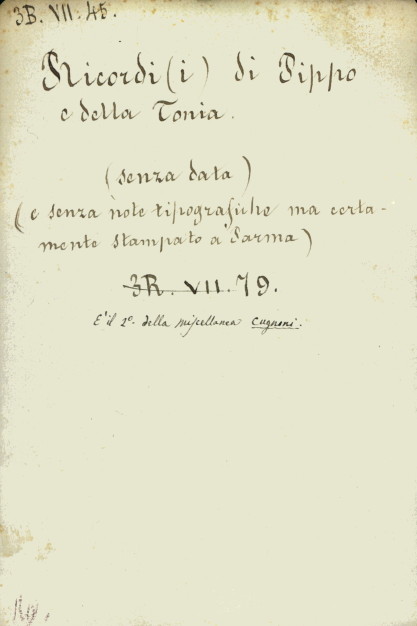 3B. VII. 45.
Ricordi(i) di Pippo
e della Tonia.
(senza data)
(e senza note tipografiche ma certa-
mente stampato a Parma)
3R. VII. 79.
E' il 2º. della miscellanea Cugnoni.